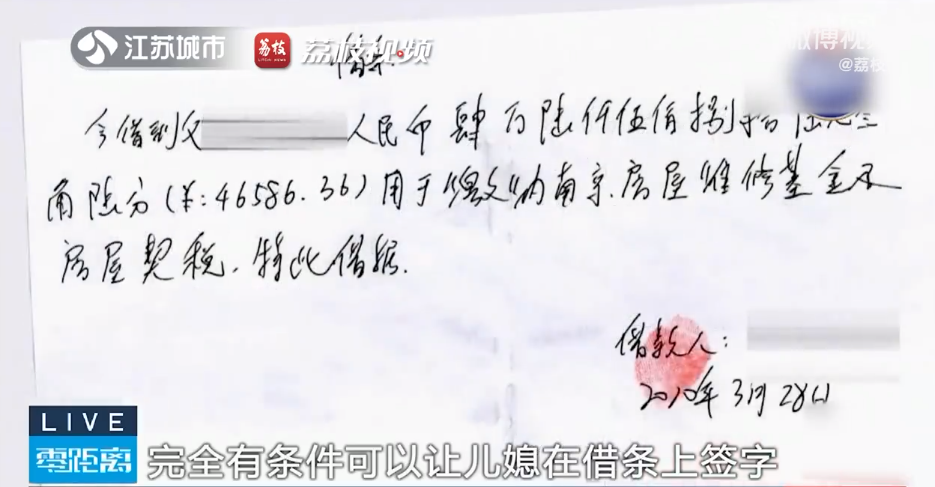 江苏城市
荔枝
LITCHI NEWS
荔枝视频
微博视
@荔枝
借条
今借到父 人民币肆万陆仟伍佰捌拾陆元叁
角陆分(¥:46586.36)用于"缴"纳南京房屋维修基金及
房屋契税.特此借据.
借款人:
2010年3月28日
LIVE
零距离
完全有条件可以让儿媳在借条上签字